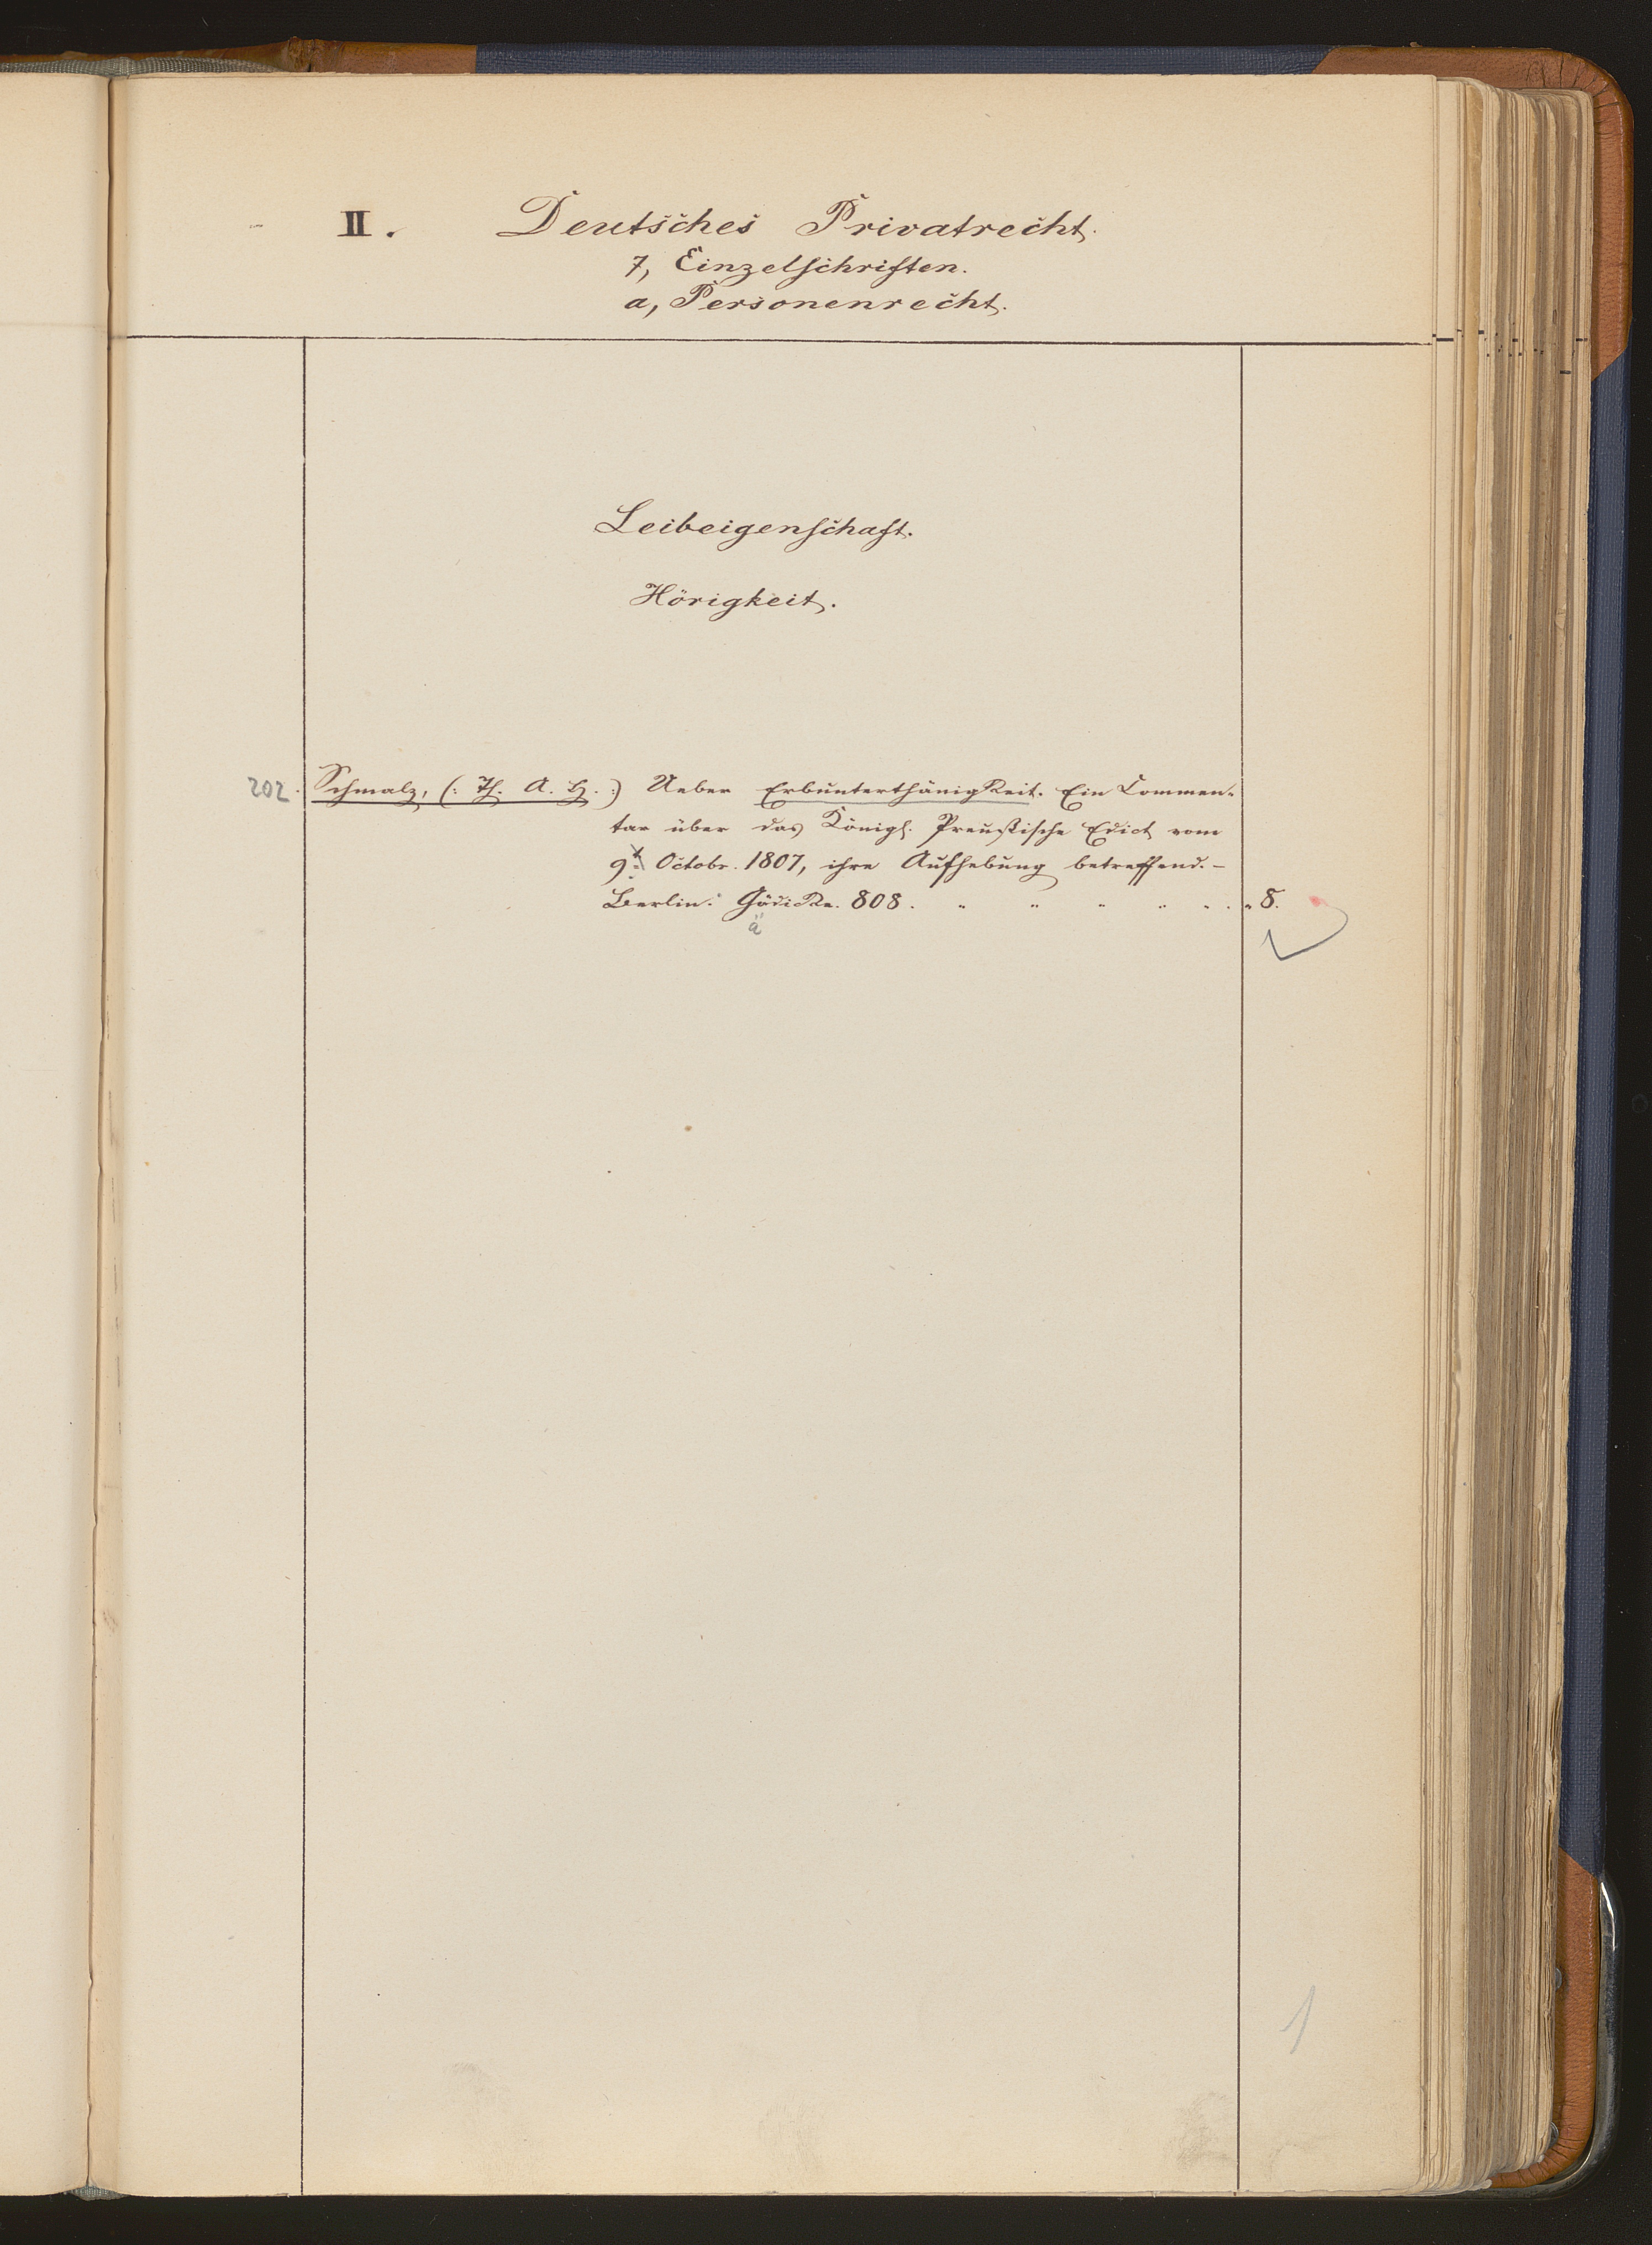 II. Deutsches Privatrecht.
7, Einzelschriften.
a, Personenrecht.
Leibeigenschaft.
Hörigkeit.
202. Schmalz, (: Th. A. H. :) Ueber Erbunterthänigkeit. Ein Commen-
tar über das Königl. Preußische Edict vom
9t. Octobr. 1807, ihre Aufhebung betreffend. –
Berlin. Gödicke. 808. " " " " " . " 8.
ä
1